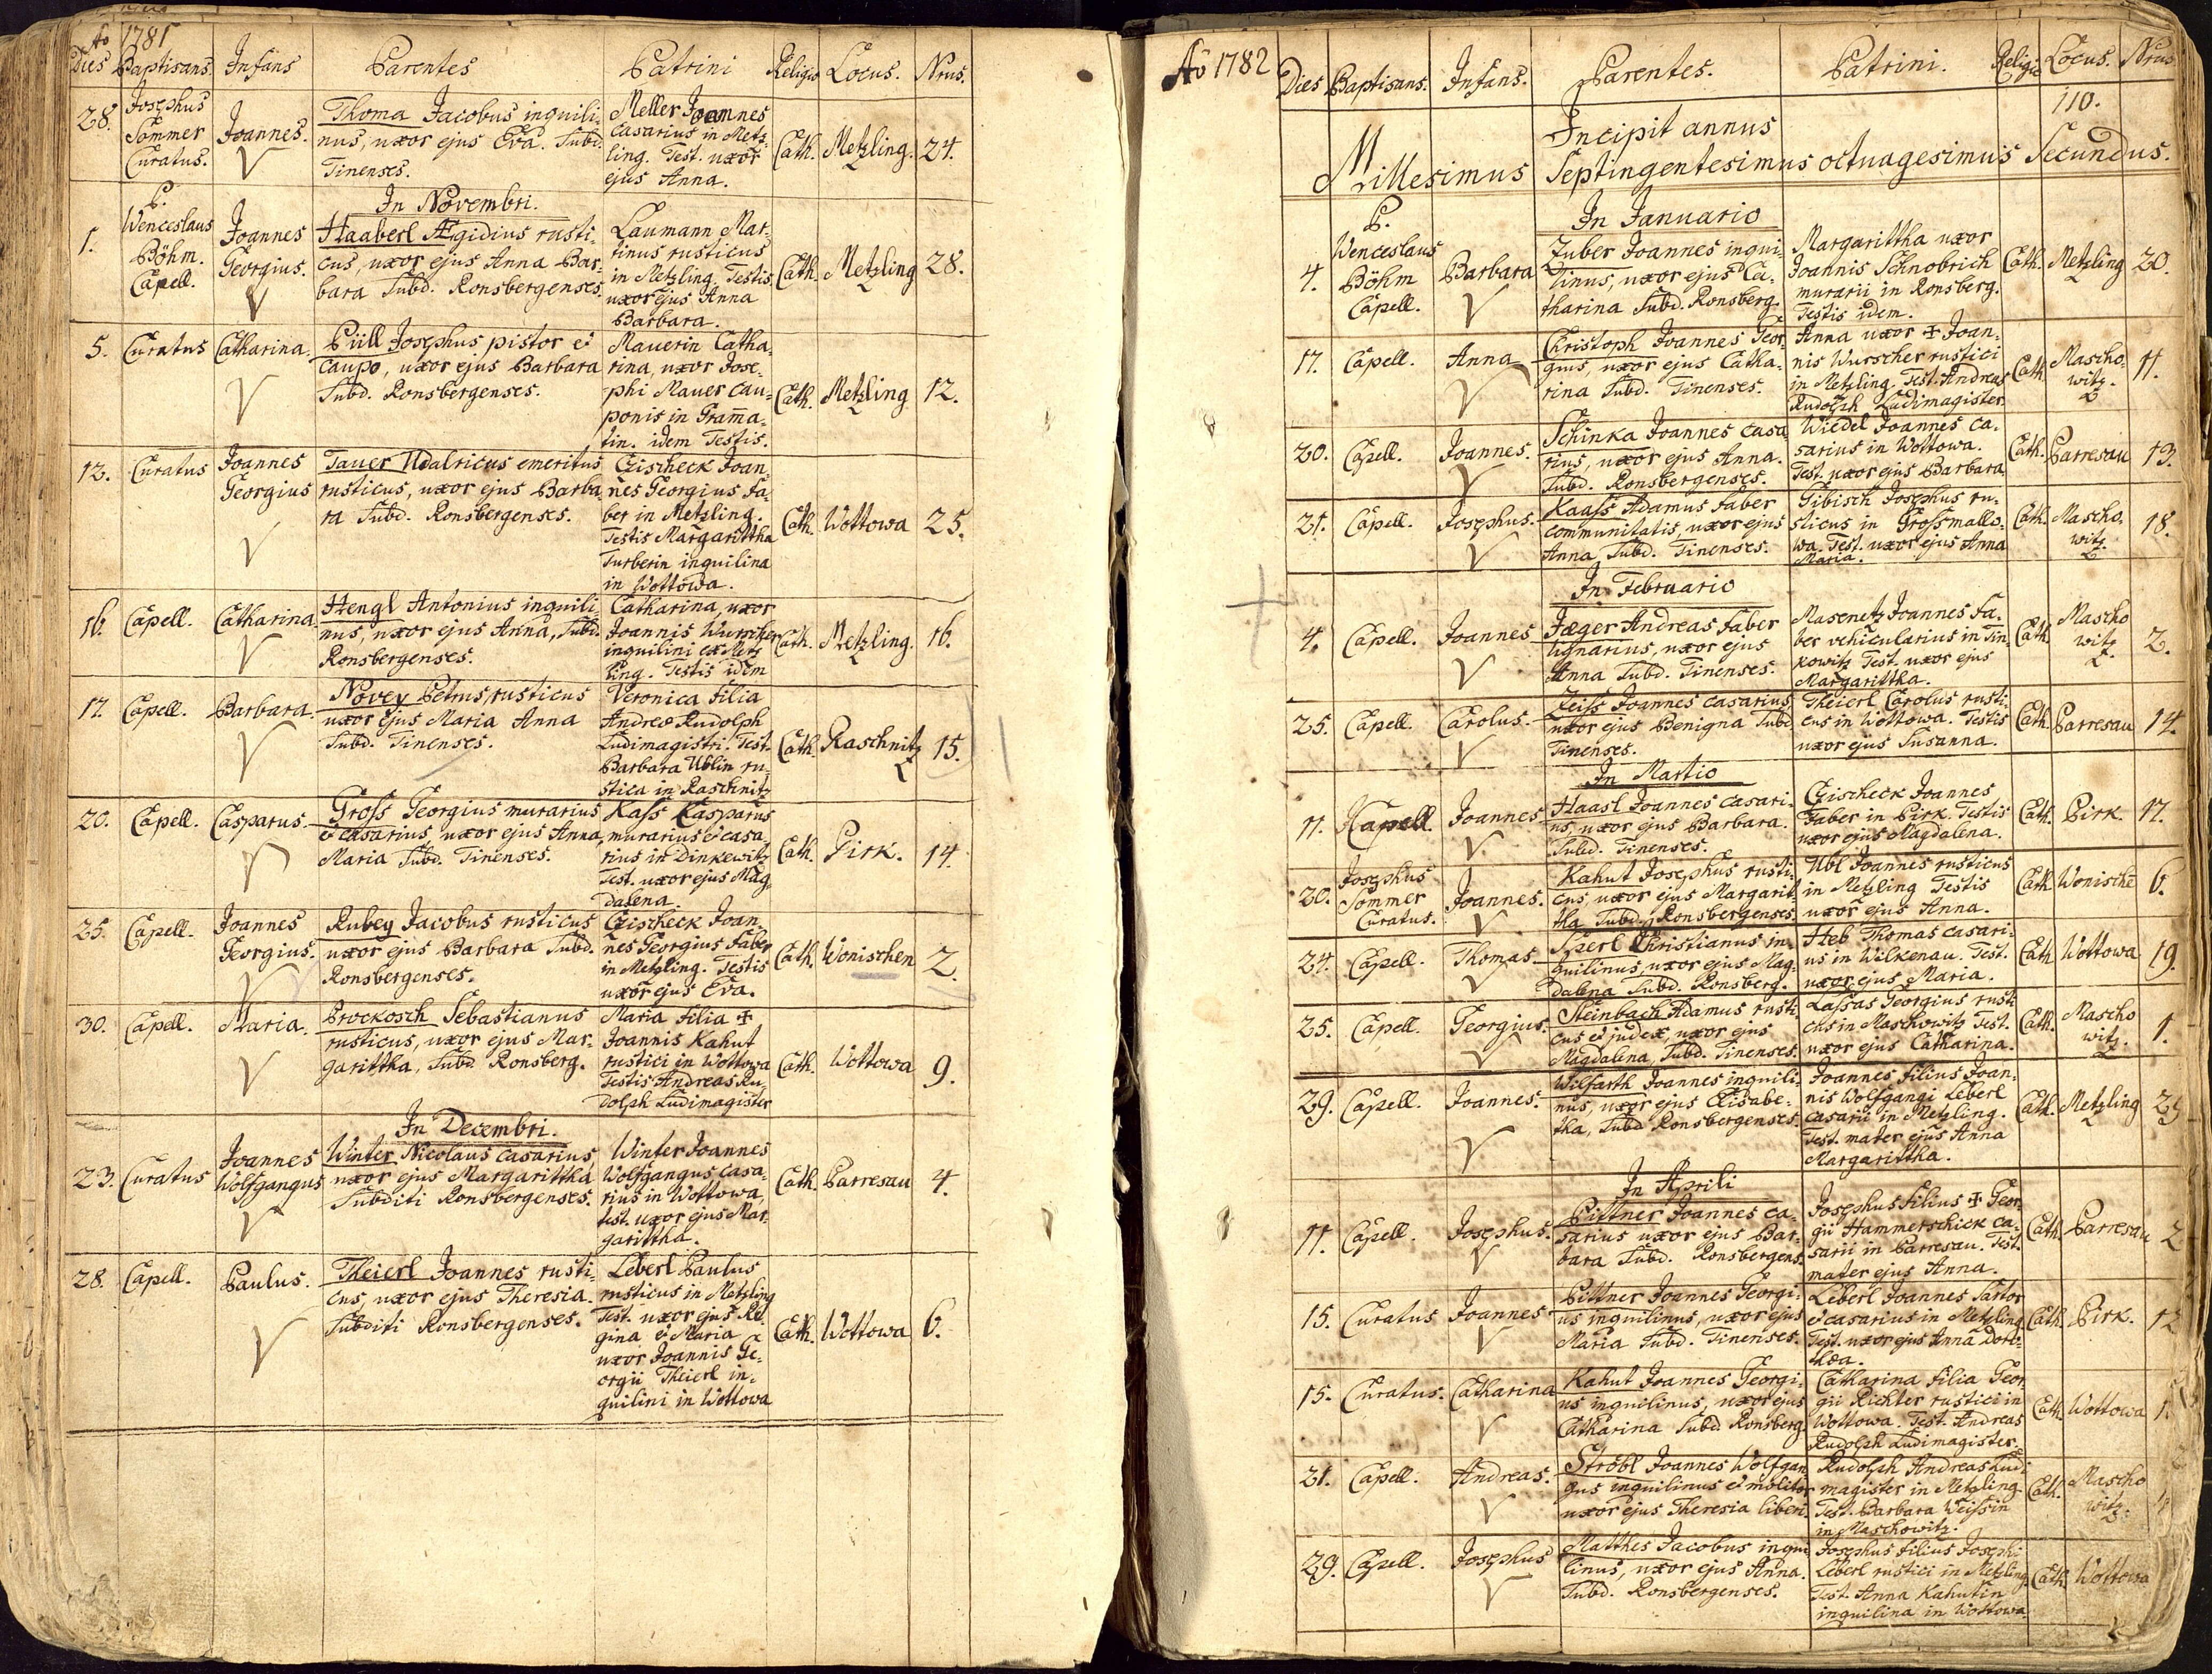 Ao 1781
Dies Baptisans. Infans Parentes Patrini Religio Locus. Nrus.
28. Josephus Sommer Curatus. Joannes.
Thoma Jacobus inquili-
nus, uxor ejus Eva. Subd.
Tinenses.
Meller Joannes
casarius in Metz-
ling. Test. uxor
ejus Anna.
Cath. Metzling. 24.
In Novembri.
1. P. Wenceslaus Böhm. Capell. Joannes Georgius.
Haaberl Ægidius rusti-
cus, uxor ejus Anna Bar-
bara Subd. Ronsbergenses.
Laumann Mar-
tinus rusticus
in Metzling. Testis
uxor ejus Anna
Barbara.
Cath. Metzling 28.
5. Curatus Catharina.
Püll Josephus pistor et
caupo, uxor ejus Barbara
Subd. Ronsbergenses.
Mauerin Catha-
rina, uxor Jose-
phi Mauer cau-
ponis in Gram̄a-
tin. idem Testis.
Cath. Metzling 12.
12. Curatus Joannes Georgius
Tauer Udalricus emeritus
rusticus, uxor ejus Barba
ra Subd. Ronsbergenses.
Czischeck Joan-
nes Georgius fa-
ber in Metzling.
Testis Margarittha
Turberin inquilina
in Wottowa.
Cath. Wottowa 25.
16. Capell. Catharina.
Hengl Antonius inquili-
nus, uxor ejus Anna, Subd.
Ronsbergenses.
Catharina, uxor
Joannis Wurscher
inquilini ex Metz
ling. Testis idem
Cath. Metzling. 16.
17. Capell. Barbara.
Novey Petrus, rusticus
uxor ejus Maria Anna
Subd. Tinenses.
Veronica filia
Andreæ Rudolph
Ludimagistri. Test.
Barbara Ublin ru-
stica in Raschnitz
Cath. Raschnitz 15.
20. Capell. Casparus.
Gross Georgius murarius
et casarius, uxor ejus Anna
Maria Subd. Tinenses.
Kass Kasparus
murarius et casa-
rius in Dinkewitz
Test. uxor ejus Mag-
dalena.
Cath. Pirk. 14.
25. Capell. Joannes Georgius.
Rubey Jacobus rusticus
uxor ejus Barbara Subd.
Ronsbergenses.
Czischeck Joan-
nes Georgius faber
in Metzling. Testis
uxor ejus Eva.
Cath. Wonischen 2.
30. Capell. Maria.
Prockosch Sebastianus
rusticus, uxor ejus Mar-
garittha, Subd. Ronsberg.
Maria filia ✝
Joannis Kahut
rustici in Wottowa
Testis Andreas Ru-
dolph Ludimagister
Cath. Wottowa 9.
In Decembri.
23. Curatus Joannes Wolfgangus
Winter Nicolaus casarius,
uxor ejus Margarittha
Subditi Ronsbergenses.
Winter Joannes
Wolfgangus casa-
rius in Wottowa,
test. uxor ejus Mar-
garittha.
Cath. Parresau 4.
28. Capell. Paulus.
Theierl Joannes rusti-
cus, uxor ejus Theresia.
Subditi Ronsbergenses.
Leberl Paulus
rusticus in Metzling
Test. uxor ejus Re-
gina et Maria
uxor Joannis Ge-
orgii Theierl in-
quilini in Wottowa
Cath. Wottowa 6.
Ao 1782
Dies Baptisans. Infans. Parentes. Patrini. Religio Locus. Nrus
110.
Incipit annus
Millesimus Septingentesimus octuagesimus Secundus.
In Januario
4. P. Wenceslaus Böhm Capell. Barbara
Zuber Joannes inqui-
linus, uxor ejus Ca-
tharina Subd. Ronsberg.
Margarittha uxor
Joannis Schnobrich
murarii in Ronsberg.
Testis idem.
Cath. Metzling 20.
17. Capell. Anna
Christoph Joannes Geor-
gius, uxor ejus Catha-
rina Subd. Tinenses.
Anna uxor ✝ Joan-
nis Wurscher rustici
in Metzling. Test. Andreas
Rudolph Ludimagister.
Cath. Mascho-
witz. 11.
20. Capell. Joannes.
Schinka Joannes casa
rius, uxor ejus Anna.
Subd. Ronsbergenses.
Wiedel Joannes ca-
sarius in Wottowa.
Test. uxor ejus Barbara
Cath. Parresau 13.
21. Capell. Josephus.
Kaass Adamus faber
communitatis, uxor ejus
Anna, Subd. Tinenses.
Gibisch Josephus ru-
sticus in Grossmallo-
wa. Test. uxor ejus Anna
Maria.
Cath. Mascho-
witz. 18.
In Februario
4. Capell. Joannes
Jæger Andreas faber
lignarius, uxor ejus
Anna Subd. Tinenses.
Masenetz Joannes fa-
ber vehicularius in Tin-
kowitz Test. uxor ejus
Margarittha.
Cath. Mascho
witz 2.
25. Capell. Carolus.
Zeiss Joannes casarius
uxor ejus Benigna Subd.
Tinenses.
Theierl Carolus rusti-
cus in Wottowa. Testis
uxor ejus Susanna.
Cath. Parresau 14.
In Martio
11. Capell. Joannes
Haasl Joannes casari-
us, uxor ejus Barbara.
Subd. Tinenses.
Czischeck Joannes
Faber in Pirk. Testis
uxor ejus Magdalena.
Cath. Pirk. 17.
20. Josephus Sommer Curatus. Joannes.
Kahut Josephus rusti-
cus, uxor ejus Margarit-
tha Subd. Ronsbergenses.
Ubl Joannes rusticus
in Metzling Testis
uxor ejus Anna.
Cath Wonische 6.
24. Capell. Thomas
Sperl Christianus in-
quilinus, uxor ejus Mag-
dalena Subd. Ronsberg.
Heb Thomas casari-
us in Wilkenau. Test.
uxor ejus Maria.
Cath Wottowa 19.
25. Capell. Georgius.
Steinbach Adamus rusti
cus et judex, uxor ejus
Magdalena, Subd. Tinenses.
Lassas Georgius rusti
cus in Maschowitz Test.
uxor ejus Catharina.
Cath. Mascho
witz. 1.
29. Capell. Joannes.
Wilfarth Joannes inquili-
nus, uxor ejus Elisabe-
tha, Subd Ronsbergenses.
Joannes filius Joan-
nis Wolfgangi Leberl
casarii in Metzling.
Test. mater ejus Anna
Margarittha.
Cath. Metzling
In Aprili
11. Capell. Josephus.
Pittner Joannes ca-
sarius uxor ejus Bar-
bara Subd. Ronsbergens.
Josephus filius ✝ Geor-
gii Hammerschick ca-
sarii in Parresau. Test.
mater ejus Anna.
Cath. Parresau 2
15. Curatus Joannes
Pittner Joannes Georgi-
us inquilinus, uxor ejus
Maria Subd. Tinenses.
Leberl Joannes Sartor
et casarius in Metzling
Test. uxor ejus Anna Doro-
thea.
Cath. Pirk. 12
15. Curatus. Catharina
Kahut Joannes Georgi-
us inquilinus, uxor ejus
Catharina Subd. Ronsberg.
Catharina filia Geor-
gii Richter rustici in
Wottowa. Test. Andreas
Rudolph Ludimagister.
Cath. Wottowa 1.
21. Capell. Andreas.
Ströbl Joannes Wolfgan
gus inquilinus et molitor
uxor ejus Theresia liberi.
Rudolph Andreas Ludi
magister in Metzling.
Test. Barbara Weissin
in Maschowitz.
Cath. Mascho
witz.
29. Capell. Josephus
Matthes Jacobus inqui
linus, uxor ejus Anna.
Subd. Ronsbergenses.
Josephus filius Josephi
Leberl rustici in Metzling.
Test. Anna Kahutin
inquilina in Wottowa.
Cath. Wottowa